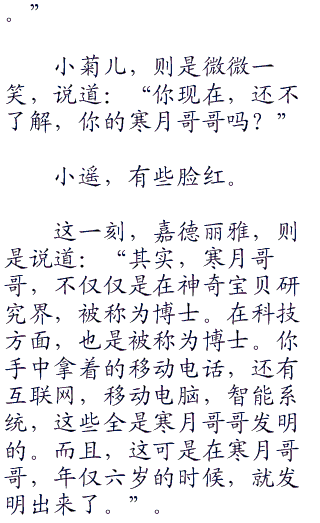 。”
小菊儿，则是微微一
笑，说道：“你现在，还不
了解，你的寒月哥哥吗？”
小遥，有些脸红。
这一刻，嘉德丽雅，则
是说道：“其实，寒月哥
哥，不仅仅是在神奇宝贝研
究界，被称为博士。在科技
方面，也是被称为博士。你
手中拿着的移动电话，还有
互联网，移动电脑，智能系
统，这些全是寒月哥哥发明
的。而且，这可是在寒月哥
哥，年仅六岁的时候，就发
明出来了。”。